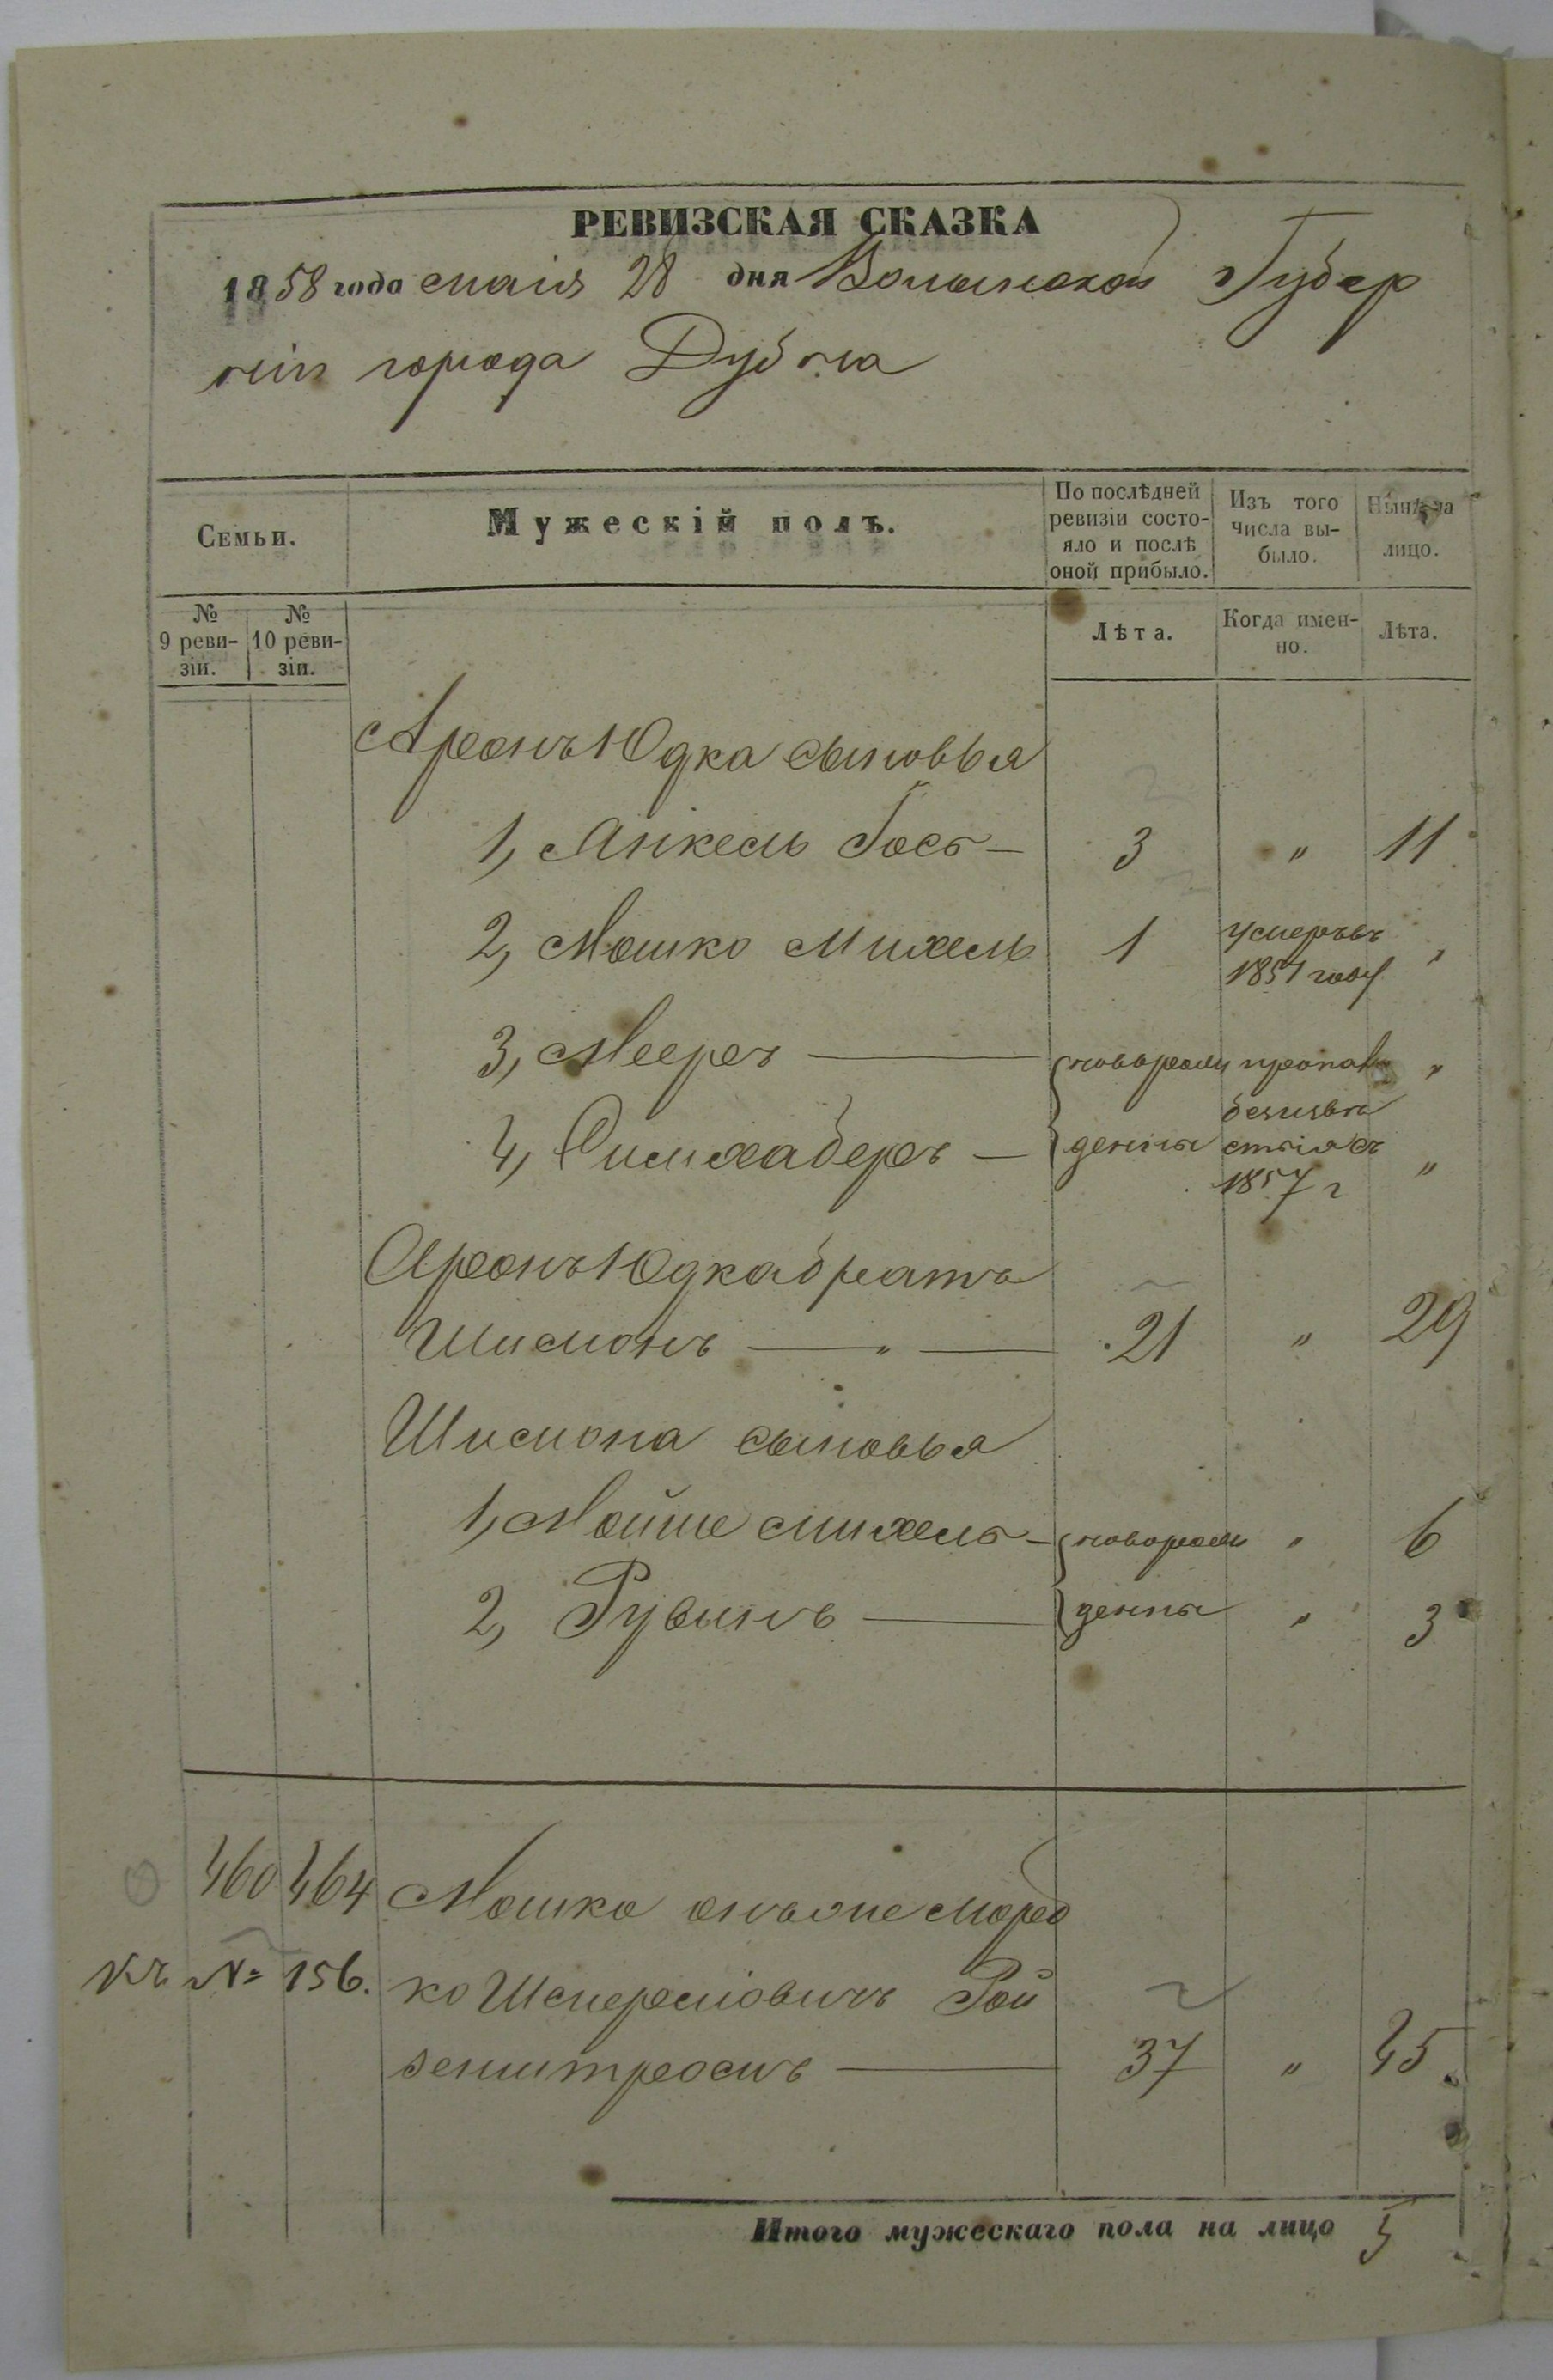 РЕВИЗСКАЯ СКАЗКА
1858 года маія 28 дня Волынской Губер
ніи города Дубна
Семьи.
Мужескій полъ.
По послѣдней ревизіи состо-
яло и послѣ оной прибыло.
Изъ того числа вы-
было.
Нынѣ на лицо.
№ 9 реви-
зіи.
№ 10 реви-
зіи.
Лѣта.
Когда имен-
но.
Лѣта.
Аронъ Юдка сыновья
1, Янкель Іось — 3 " 11
2, Мошко Михель 1 умеръ въ 1851 году "
3, Мееръ — новорож пропав "
4, Симхаберъ — денны безизвѣ
стія съ 1857 г "
Аронъ Юдка братъ
Шимонъ — " — 21 " 29
Шимона сыновья
1, Мойше Михель — новорож " 6
2, Рувынъ — денны " 3
460 464 Мошко онъ же Мард
къ № 156. ко Шмерліовичъ Рой
зенштромъ — 37 " 45
Итого мужескаго пола на лицо 5